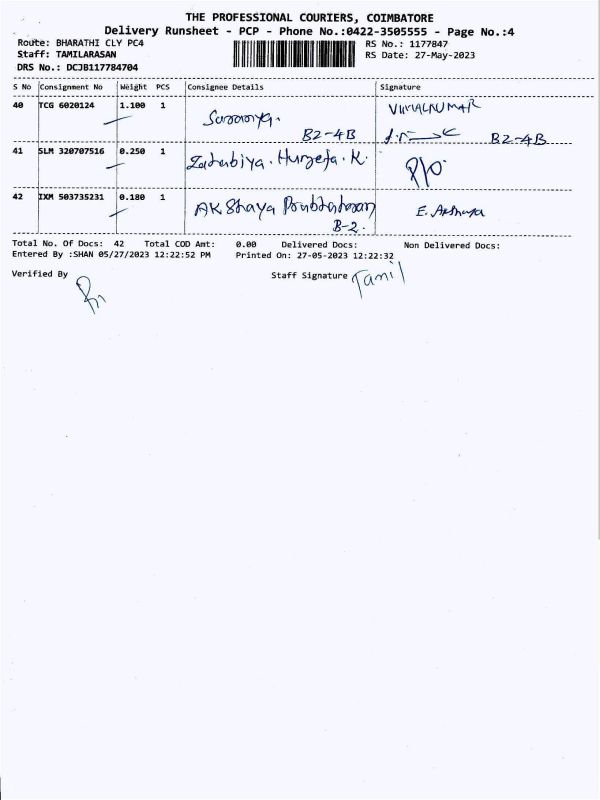 THE PROFESSIONAL COURIERS, COIMBATORE
Delivery Runsheet - PCP - Phone No.:0422-3505555 - Page No.:4
Route: BHARATHI CLY PC4 RS No.: 1177847
Staff: TAMILARASAN RS Date: 27-May-2023
DRS No.: DCJB117784704
S No Consignment No Weight PCS Consignee Details Signature
40 TCG 6020124 1.100 1 VIMALKUMAR
B2-4B B2-4B
41 SLM 320707516 0.250 1 K.
42 IXM 503735231 0.180 1 AKShaya E. Akshaya
B-2.
Total No. Of Docs: 42 Total COD Amt: 0.00 Delivered Docs: Non Delivered Docs:
Entered By :SHAN 05/27/2023 12:22:52 PM Printed On: 27-05-2023 12:22:32
Verified By Staff Signature Tamil